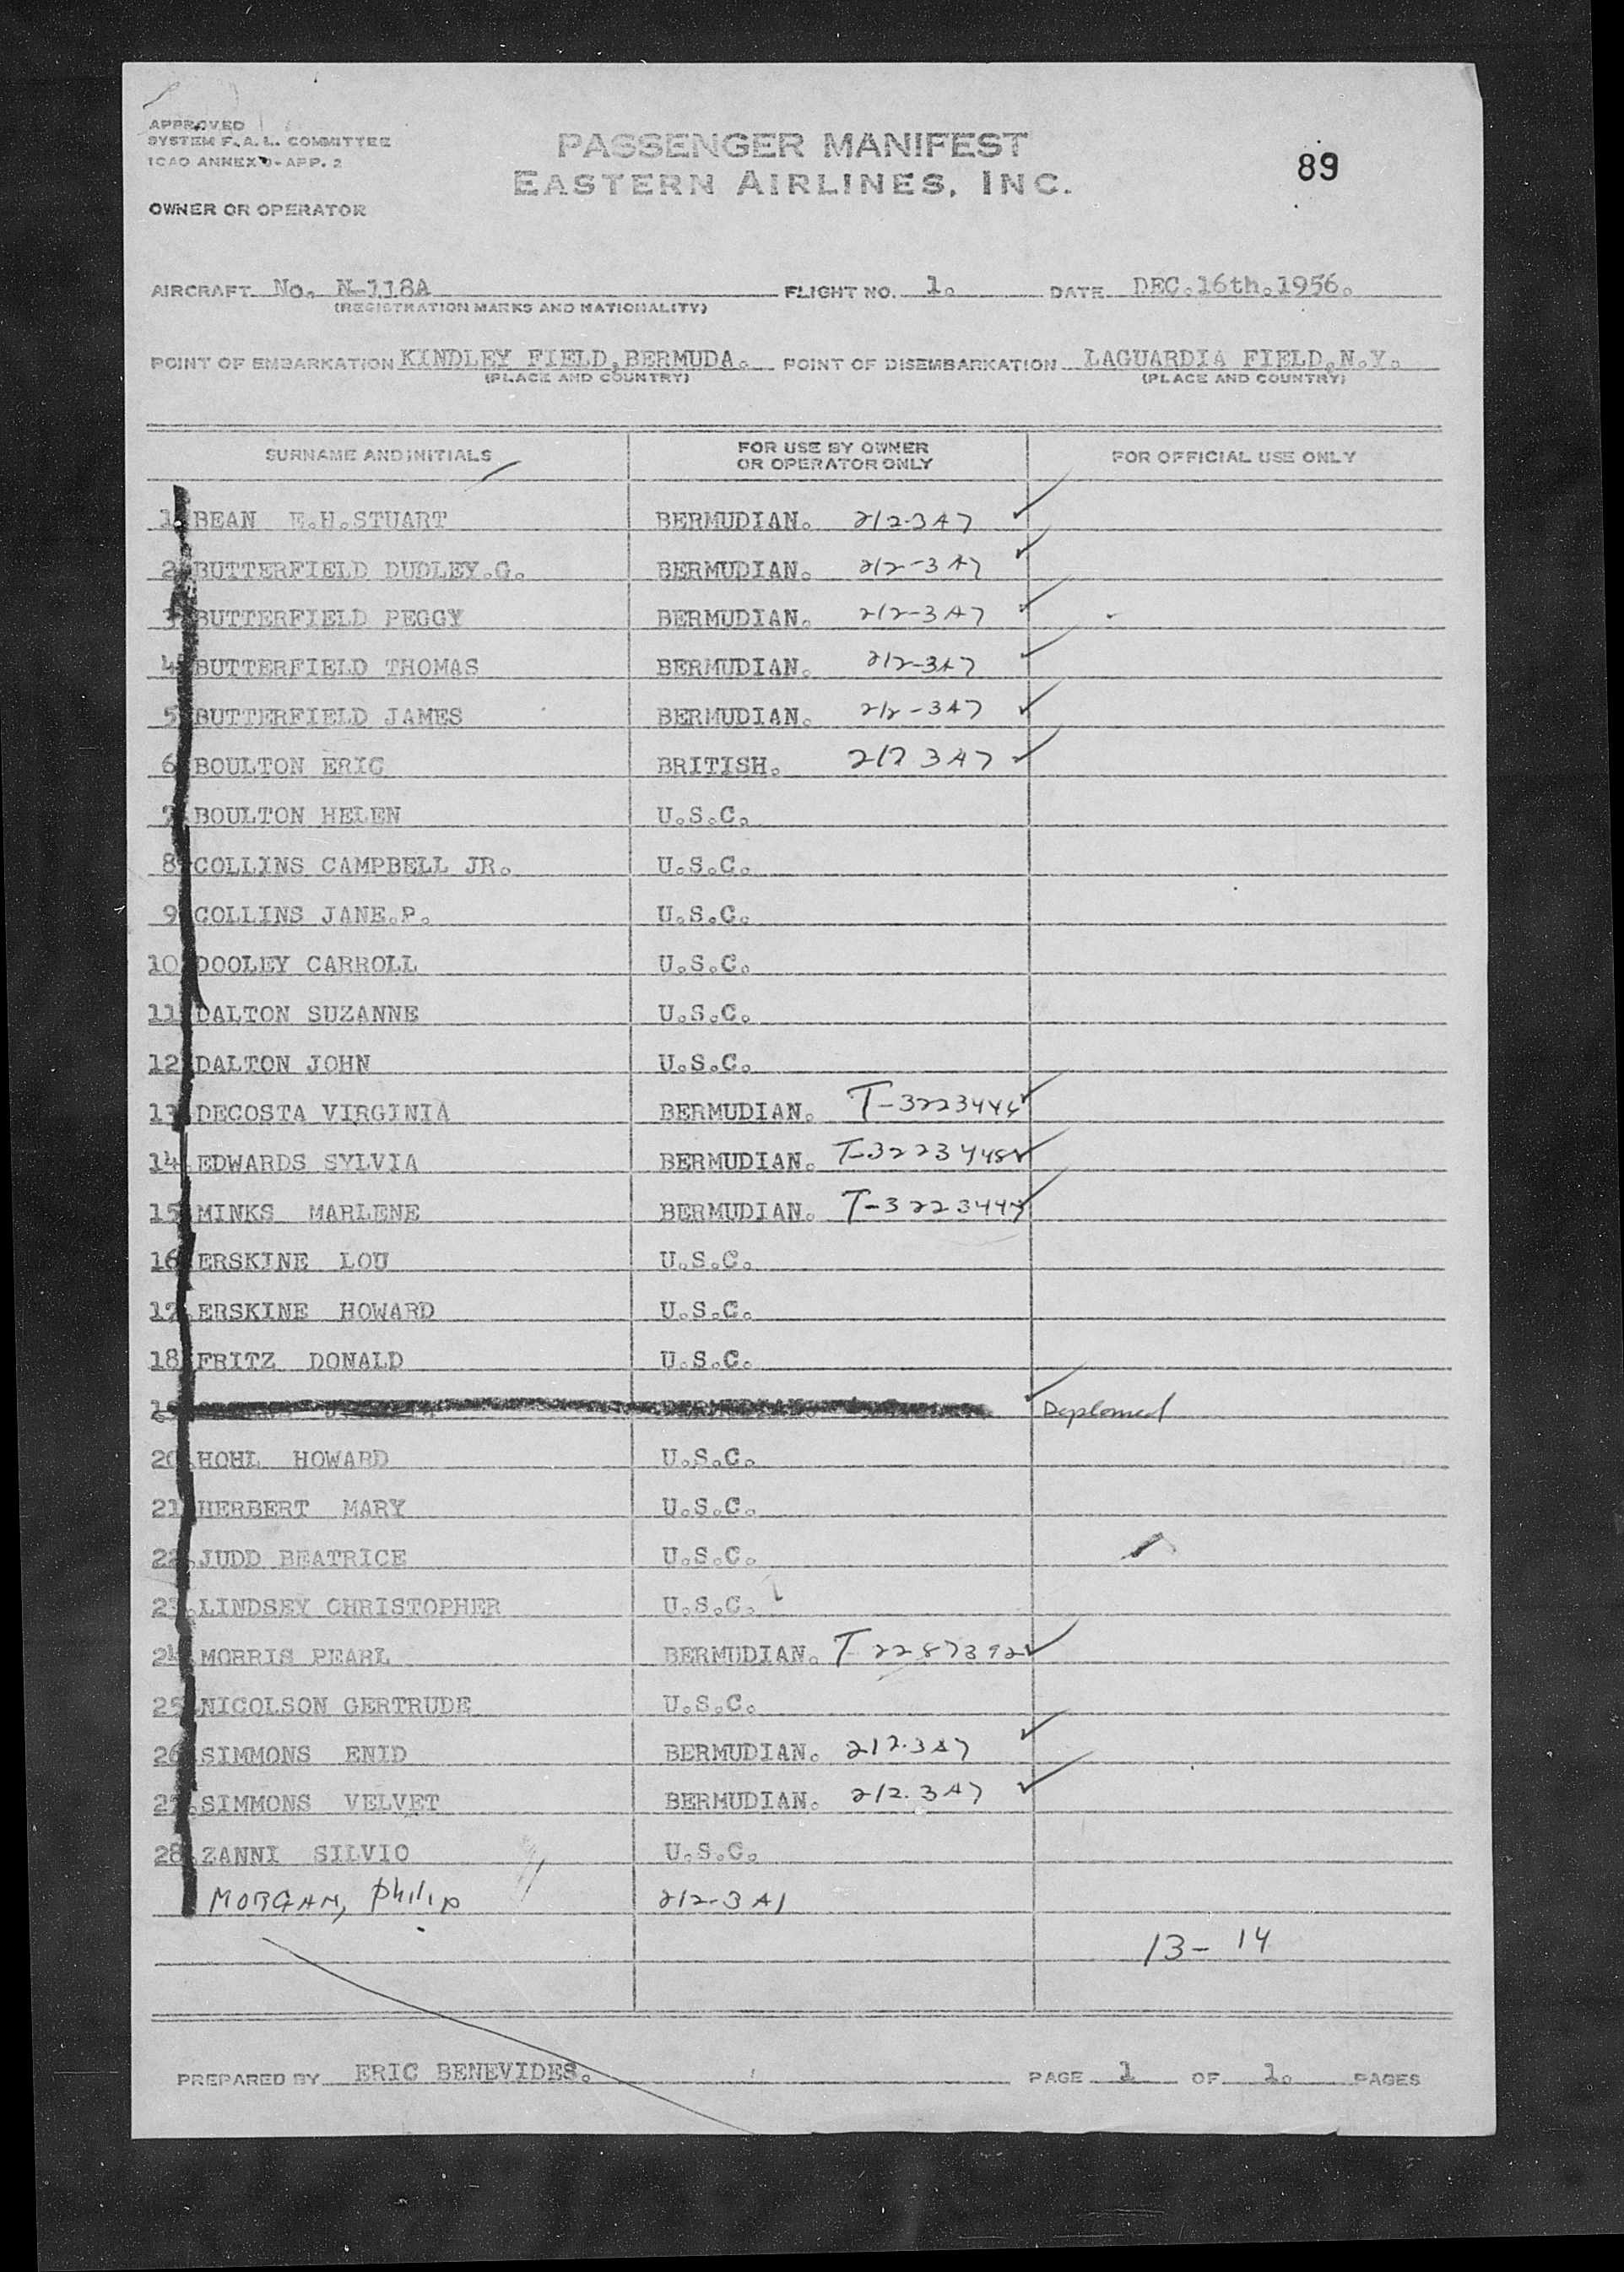 APPROVED
SYSTEM F.A.L. COMMITTEE
ICAO ANNEX 9-APP. 2
PASSENGER MANIFEST
EASTERN AIRLINES, INC.
89
OWNER OR OPERATOR
AIRCRAFT No. N-118A FLIGHT NO. 1. DATE DEC.16th.1956.
(REGISTRATION MARKS AND NATIONALITY)
POINT OF EMBARKATION KINDLEY FIELD,BERMUDA. POINT OF DISEMBARKATION LAGUARDIA FIELD,N.Y.
(PLACE AND COUNTRY) (PLACE AND COUNTRY)
SURNAME AND INITIALS FOR USE BY OWNER OR OPERATOR ONLY FOR OFFICIAL USE ONLY
1. BEAN E.H.STUART BERMUDIAN. 212-3A7 ✓
2 BUTTERFIELD DUDLEY.G. BERMUDIAN. 212-3A7 ✓
3 BUTTERFIELD PEGGY BERMUDIAN. 212-3A7 ✓
4 BUTTERFIELD THOMAS BERMUDIAN. 212-3A7 ✓
5 BUTTERFIELD JAMES BERMUDIAN. 212-3A7 ✓
6 BOULTON ERIC BRITISH. 212 3A7 ✓
7 BOULTON HELEN U.S.C.
8 COLLINS CAMPBELL JR. U.S.C.
9 COLLINS JANE.P. U.S.C.
10 DOOLEY CARROLL U.S.C.
11 DALTON SUZANNE U.S.C.
12 DALTON JOHN U.S.C.
13 DECOSTA VIRGINIA BERMUDIAN. ✓
14 EDWARDS SYLVIA BERMUDIAN. T-3223445 ✓
15 MINKS MARLENE BERMUDIAN. ✓
16 ERSKINE LOU U.S.C.
17 ERSKINE HOWARD U.S.C.
18 FRITZ DONALD U.S.C.
19 ✓ Deplaned
20 HOHL HOWARD U.S.C.
21 HERBERT MARY U.S.C.
22. JUDD BEATRICE U.S.C.
23. LINDSEY CHRISTOPHER U.S.C.
24 MORRIS PEARL BERMUDIAN. T-2287392 ✓
25 NICOLSON GERTRUDE U.S.C.
26 SIMMONS ENID BERMUDIAN. 212-3A7 ✓
27. SIMMONS VELVET BERMUDIAN. 212.3A7 ✓
28. ZANNI SILVIO U.S.C.
MORGAN, Philip 212-3A1
13- 14
PREPARED BY ERIC BENEVIDES. PAGE 1 OF 1. PAGES